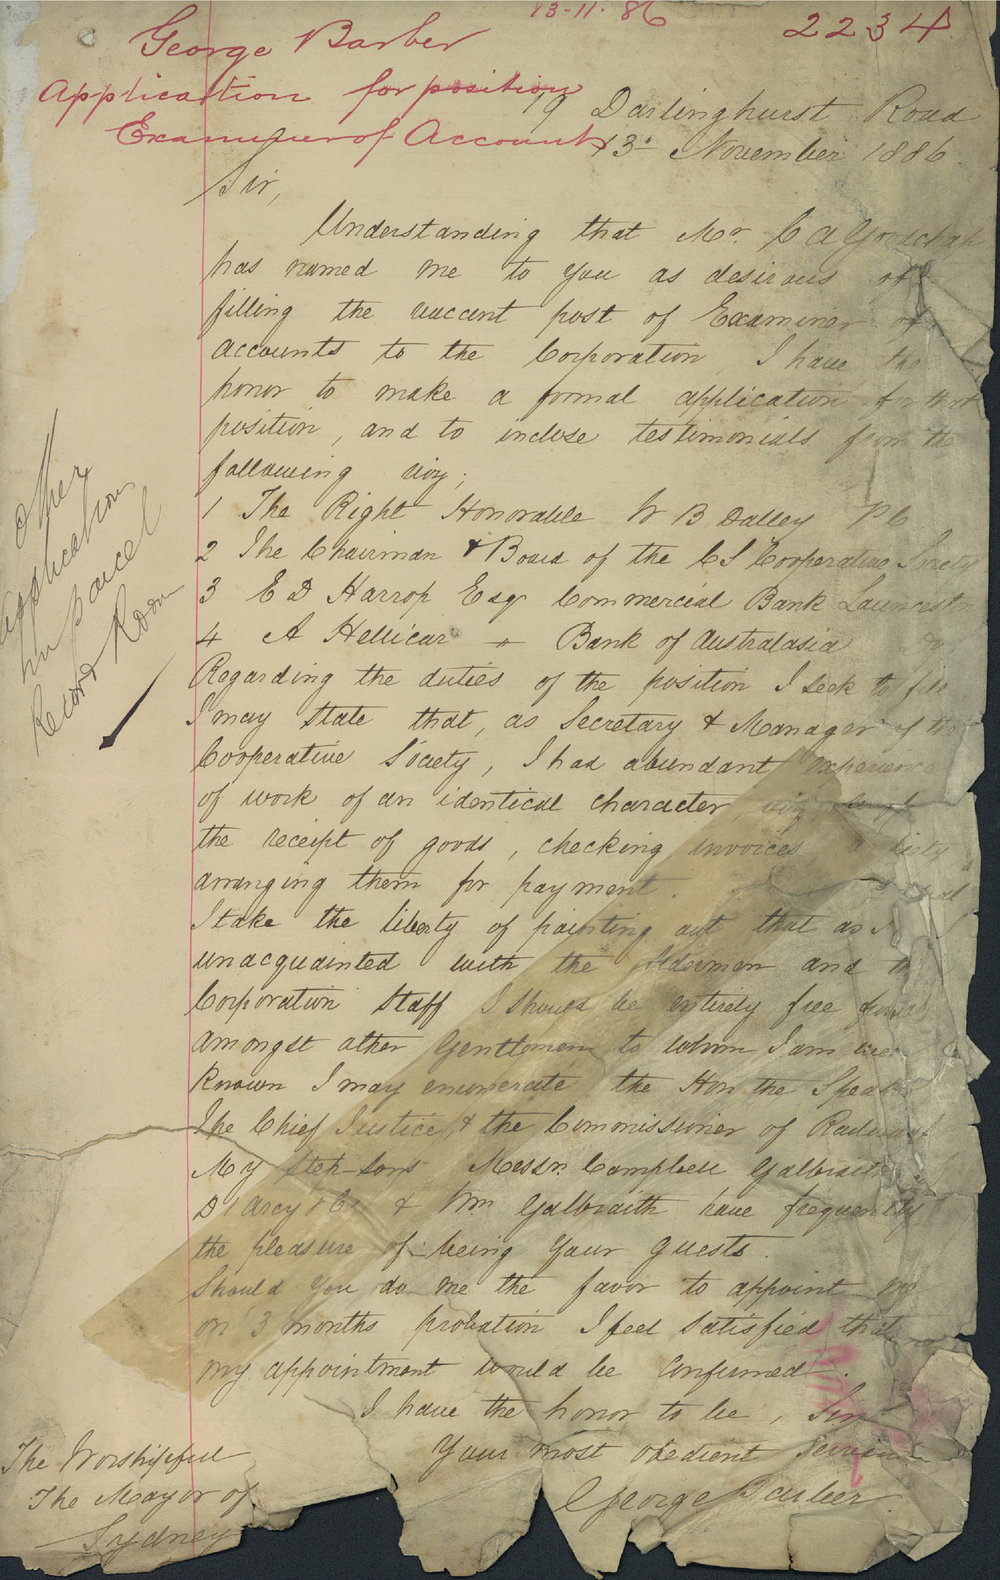 13-11-86
2234
George Barber
Application for position
Examiner of Accounts
19 Darlinghurst Road
13th November 1886
Sir,
Understanding that Mr. C A
has named me to you as desirous of
filling the vaccent post of Examiner of
accounts to the Corporation I have the
honor to make a formal application for that
position, and to inclose testimonials from the
following viz;
1 The Right Honorable W B Dalley P C
2 The Chairman & Board of the C S Cooperative Society
3 E D Harrop Esqr Commercial Bank Launceston
4 A Hellicar " Bank of Australasia Do
Regarding the duties of the position I seek to fill
I may state that, as Secretary & Manager of the
Cooperative Society, I had abundant experience
of work of an identical character, viz,
the receipt of goods, checking invoices, &
arranging them for payment.
I take the liberty of pointing out that as I
unacquainted with the Aldermen and the
Corporation Staff I should be entirely free from
Amongst other Gentlemen to whom I am well
known I may enumerate the Hon the Speaker
The Chief Justice, & the Commissioner of Railways
My Step-Sons Messrs Campbell Galbraith
D'arcy & Co & Wm Galbraith have frequently
the pleasure of being your guests.
Should you do me the favor to appoint me
on 3 months probation I feel satisfied that
my appointment would be confirmed.
I have the honor to be, Sir
Your most obedient Servant
George Barber
The Worshipful
The Mayor of
Sydney
Other
applications
in parcel
Record Room